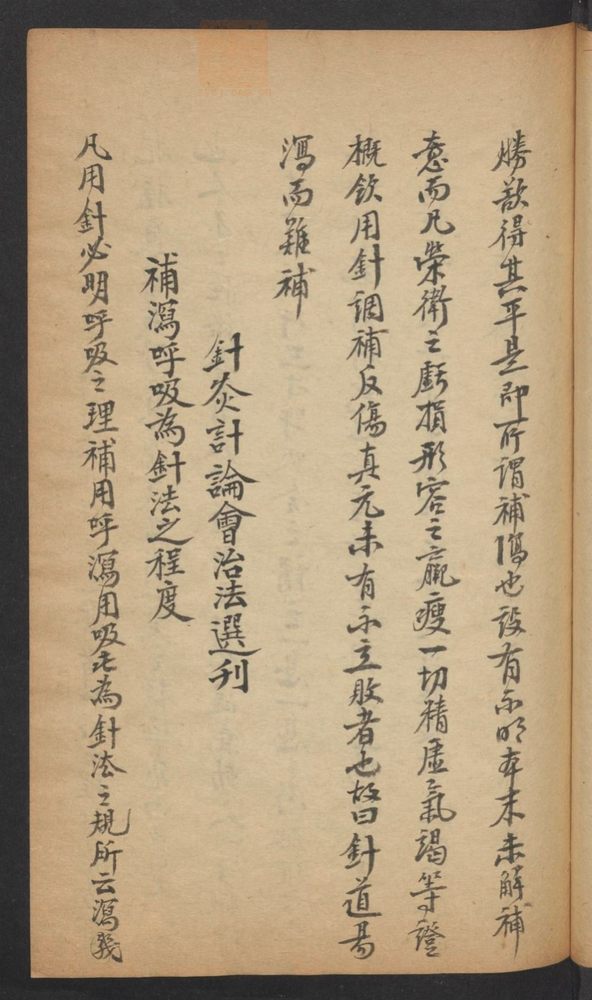 勝欲得其平是即所謂補瀉也設有不明本末未解補
意而凡榮衛之虧損形容之羸瘦一切精虛氣竭等證
概欲用針調補反傷真元未有不立敗者也故曰針道易
瀉而難補
針灸討論會治法選刊
補瀉呼吸為針法之程度
凡用針必明呼吸之理補用呼瀉用吸此為針法之規所云瀉幾